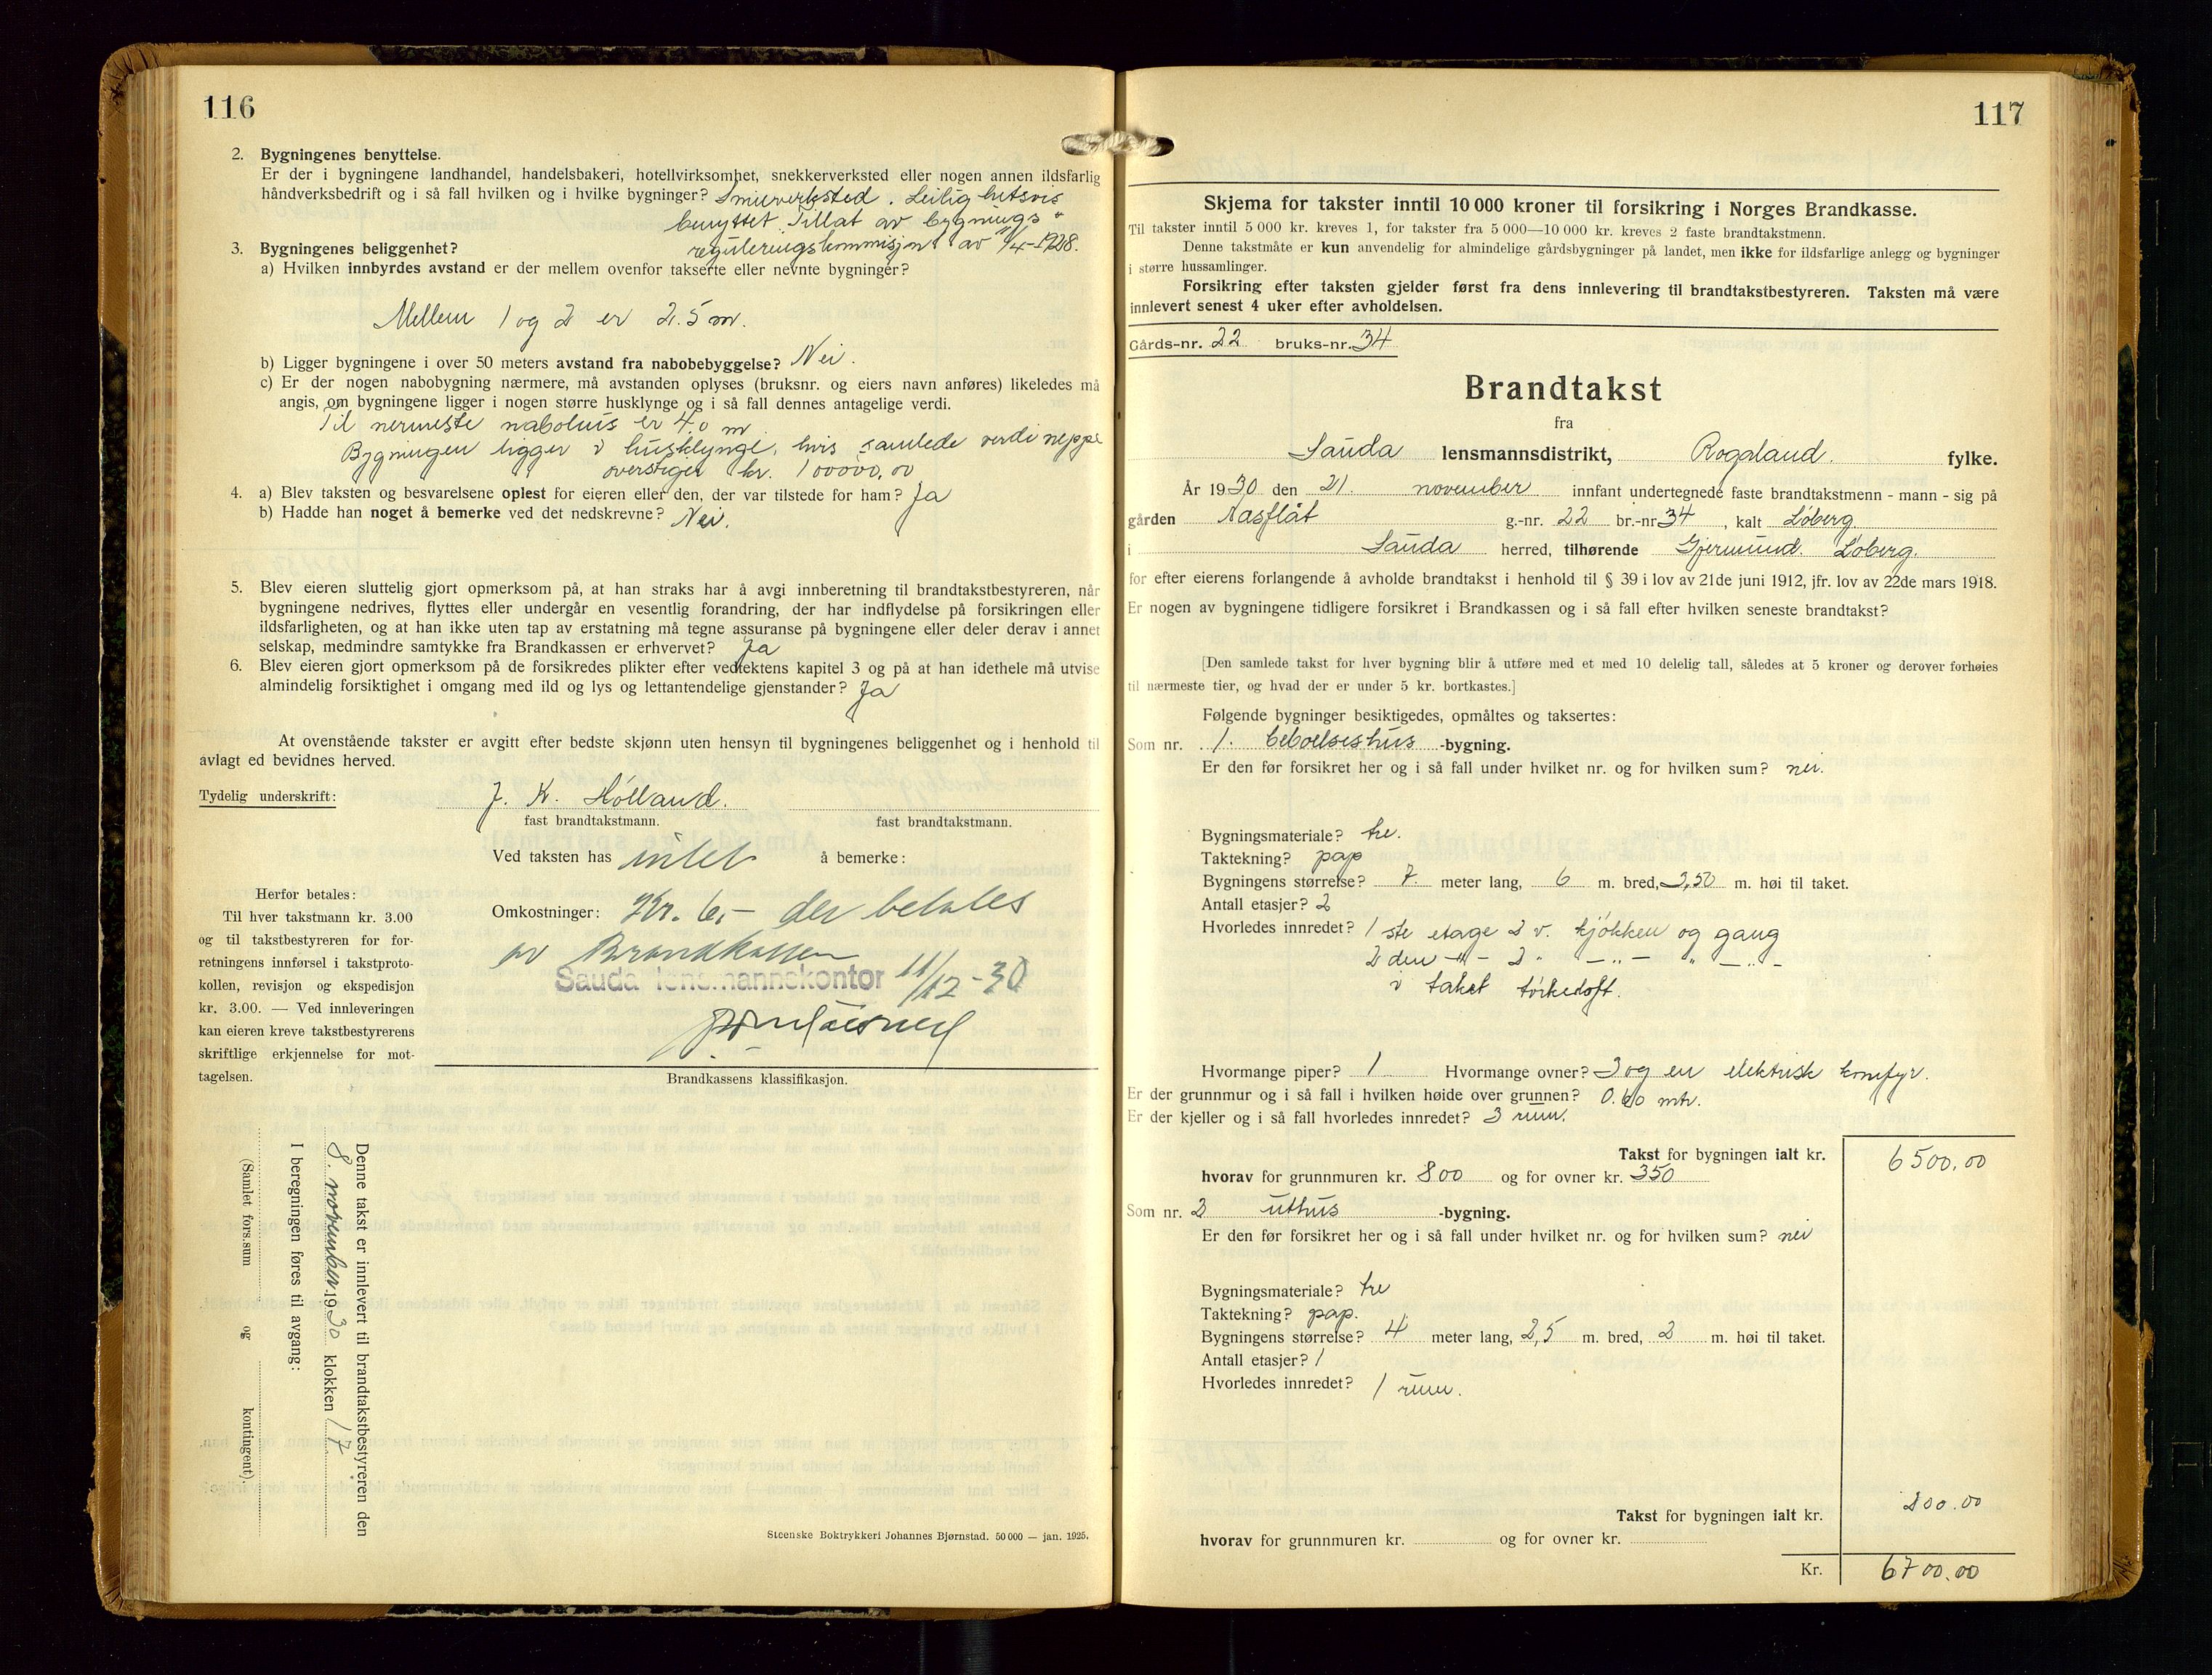 116
2. Bygningenes benyttelse.
Er der i bygningene landhandel, handelsbakeri, hotellvirksomhet, snekkerverksted eller nogen annen ildsfarlig
håndverksbedrift og i så fall hvilken og i hvilke bygninger? Smieverksted. Leilighetsvis
benyttet. Tillat av bygnings-
reguleringskommisjon av 4-1928.
3. Bygningenes beliggenhet?
a) Hvilken innbyrdes avstand er der mellem ovenfor takserte eller nevnte bygninger?
Mellem 1 og 2 er 2.5 m.
b) Ligger bygningene i over 50 meters avstand fra nabobebyggelse? Nei.
c) Er der nogen nabobygning nærmere, må avstanden oplyses (bruksnr. og eiers navn anføres) likeledes må
angis, om bygningene ligger i nogen større husklynge og i så fall dennes antagelige verdi.
Til nermeste nabohus er 4.0 m
Bygningen ligger i husklynge, hvis samlede verdi neppe
overstiger kr. 100000,00
4. a) Blev taksten og besvarelsene oplest for eieren eller den, der var tilstede for ham? Ja
b) Hadde han noget å bemerke ved det nedskrevne? Nei.
5. Blev eieren sluttelig gjort opmerksom på, at han straks har å avgi innberetning til brandtakstbestyreren, når
bygningene nedrives, flyttes eller undergår en vesentlig forandring, der har indflydelse på forsikringen eller
ildsfarligheten, og at han ikke uten tap av erstatning må tegne assuranse på bygningene eller deler derav i annet
selskap, medmindre samtykke fra Brandkassen er erhvervet? Ja
6. Blev eieren gjort opmerksom på de forsikredes plikter efter vedtektens kapitel 3 og på at han idethele må utvise
almindelig forsiktighet i omgang med ild og lys og lettantendelige gjenstander? Ja
At ovenstående takster er avgitt efter bedste skjønn uten hensyn til bygningenes beliggenhet og i henhold til
avlagt ed bevidnes herved.
Tydelig underskrift: J. K. Hølland.
fast brandtakstmann. fast brandtakstmann.
Ved taksten has intet å bemerke:
Herfor betales:
Til hver takstmann kr. 3.00
og til takstbestyreren for for-
retningens innførsel i takstproto-
kollen, revisjon og ekspedisjon
kr. 3.00. — Ved innleveringen
kan eieren kreve takstbestyrerens
skriftlige erkjennelse for mot-
tagelsen.
Omkostninger: Kr. 6,- der betales
av Brandkassen
Sauda lensmannskontor 11/12-30
Brandkassens klassifikasjon.
Denne takst er innlevert til brandtakstbestyreren den
8. november 1930 klokken 17
I beregningen føres til avgang:
(Samlet fors.sum og kontingent).
Steenske Boktrykkeri Johannes Bjørnstad. 50 000 — jan. 1925.
117
Skjema for takster inntil 10 000 kroner til forsikring i Norges Brandkasse.
Til takster inntil 5 000 kr. kreves 1, for takster fra 5 000—10 000 kr. kreves 2 faste brandtakstmenn.
Denne takstmåte er kun anvendelig for almindelige gårdsbygninger på landet, men ikke for ildsfarlige anlegg og bygninger
i større hussamlinger.
Forsikring efter taksten gjelder først fra dens innlevering til brandtakstbestyreren. Taksten må være
innlevert senest 4 uker efter avholdelsen.
Gårds-nr. 22 bruks-nr. 34
Brandtakst
fra
Sauda lensmannsdistrikt, Rogaland. fylke.
År 1930 den 21. november innfant undertegnede faste brandtakstmenn - mann - sig på
gården Aasflåt g.-nr. 22 br.-nr 34, kalt Løberg
i Sauda herred, tilhørende Gjermund Løberg.
for efter eierens forlangende å avholde brandtakst i henhold til § 39 i lov av 21de juni 1912, jfr. lov av 22de mars 1918.
Er nogen av bygningene tidligere forsikret i Brandkassen og i så fall efter hvilken seneste brandtakst?
[Den samlede takst for hver bygning blir å utføre med et med 10 delelig tall, således at 5 kroner og derover forhøies
til nærmeste tier, og hvad der er under 5 kr. bortkastes.]
Følgende bygninger besiktigedes, opmåltes og taksertes:
Som nr. 1. beboelseshus -bygning.
Er den før forsikret her og i så fall under hvilket nr. og for hvilken sum? nei.
Bygningsmateriale? tre.
Taktekning? pap
Bygningens størrelse? 7 meter lang, 6 m. bred, 3,50 m. høi til taket.
Antall etasjer? 2
Hvorledes innredet? 1 ste etage 2 v. kjøkken og gang
2 den -"- 2 " -"- " -"-
i taket tørkeloft.
Hvormange piper? 1 Hvormange ovner? 3 og en elektrisk komfyr.
Er der grunnmur og i så fall i hvilken høide over grunnen? 0.60 mtr.
Er der kjeller og i så fall hvorledes innredet? 3 rum.
Takst for bygningen ialt kr. 6500.00
hvorav for grunnmuren kr. 800 og for ovner kr. 350
Som nr. 2 uthus -bygning.
Er den før forsikret her og i så fall under hvilket nr. og for hvilken sum? nei
Bygningsmateriale? tre
Taktekning? pap.
Bygningens størrelse? 4 meter lang, 2,5 m. bred, 2 m. høi til taket.
Antall etasjer? 1
Hvorledes innredet? 1 rum.
Takst for bygningen ialt kr. 200.00
hvorav for grunnmuren kr. og for ovner kr.
Kr. 6700.00